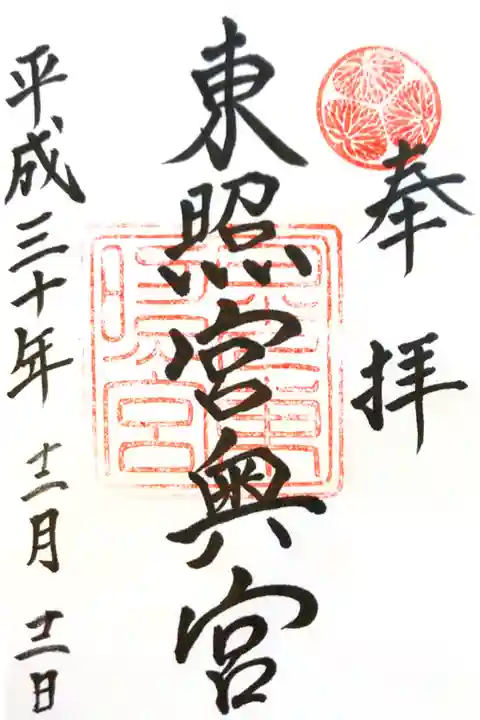 奉拝
東照宮奥宮
平成三十年十二月十二日